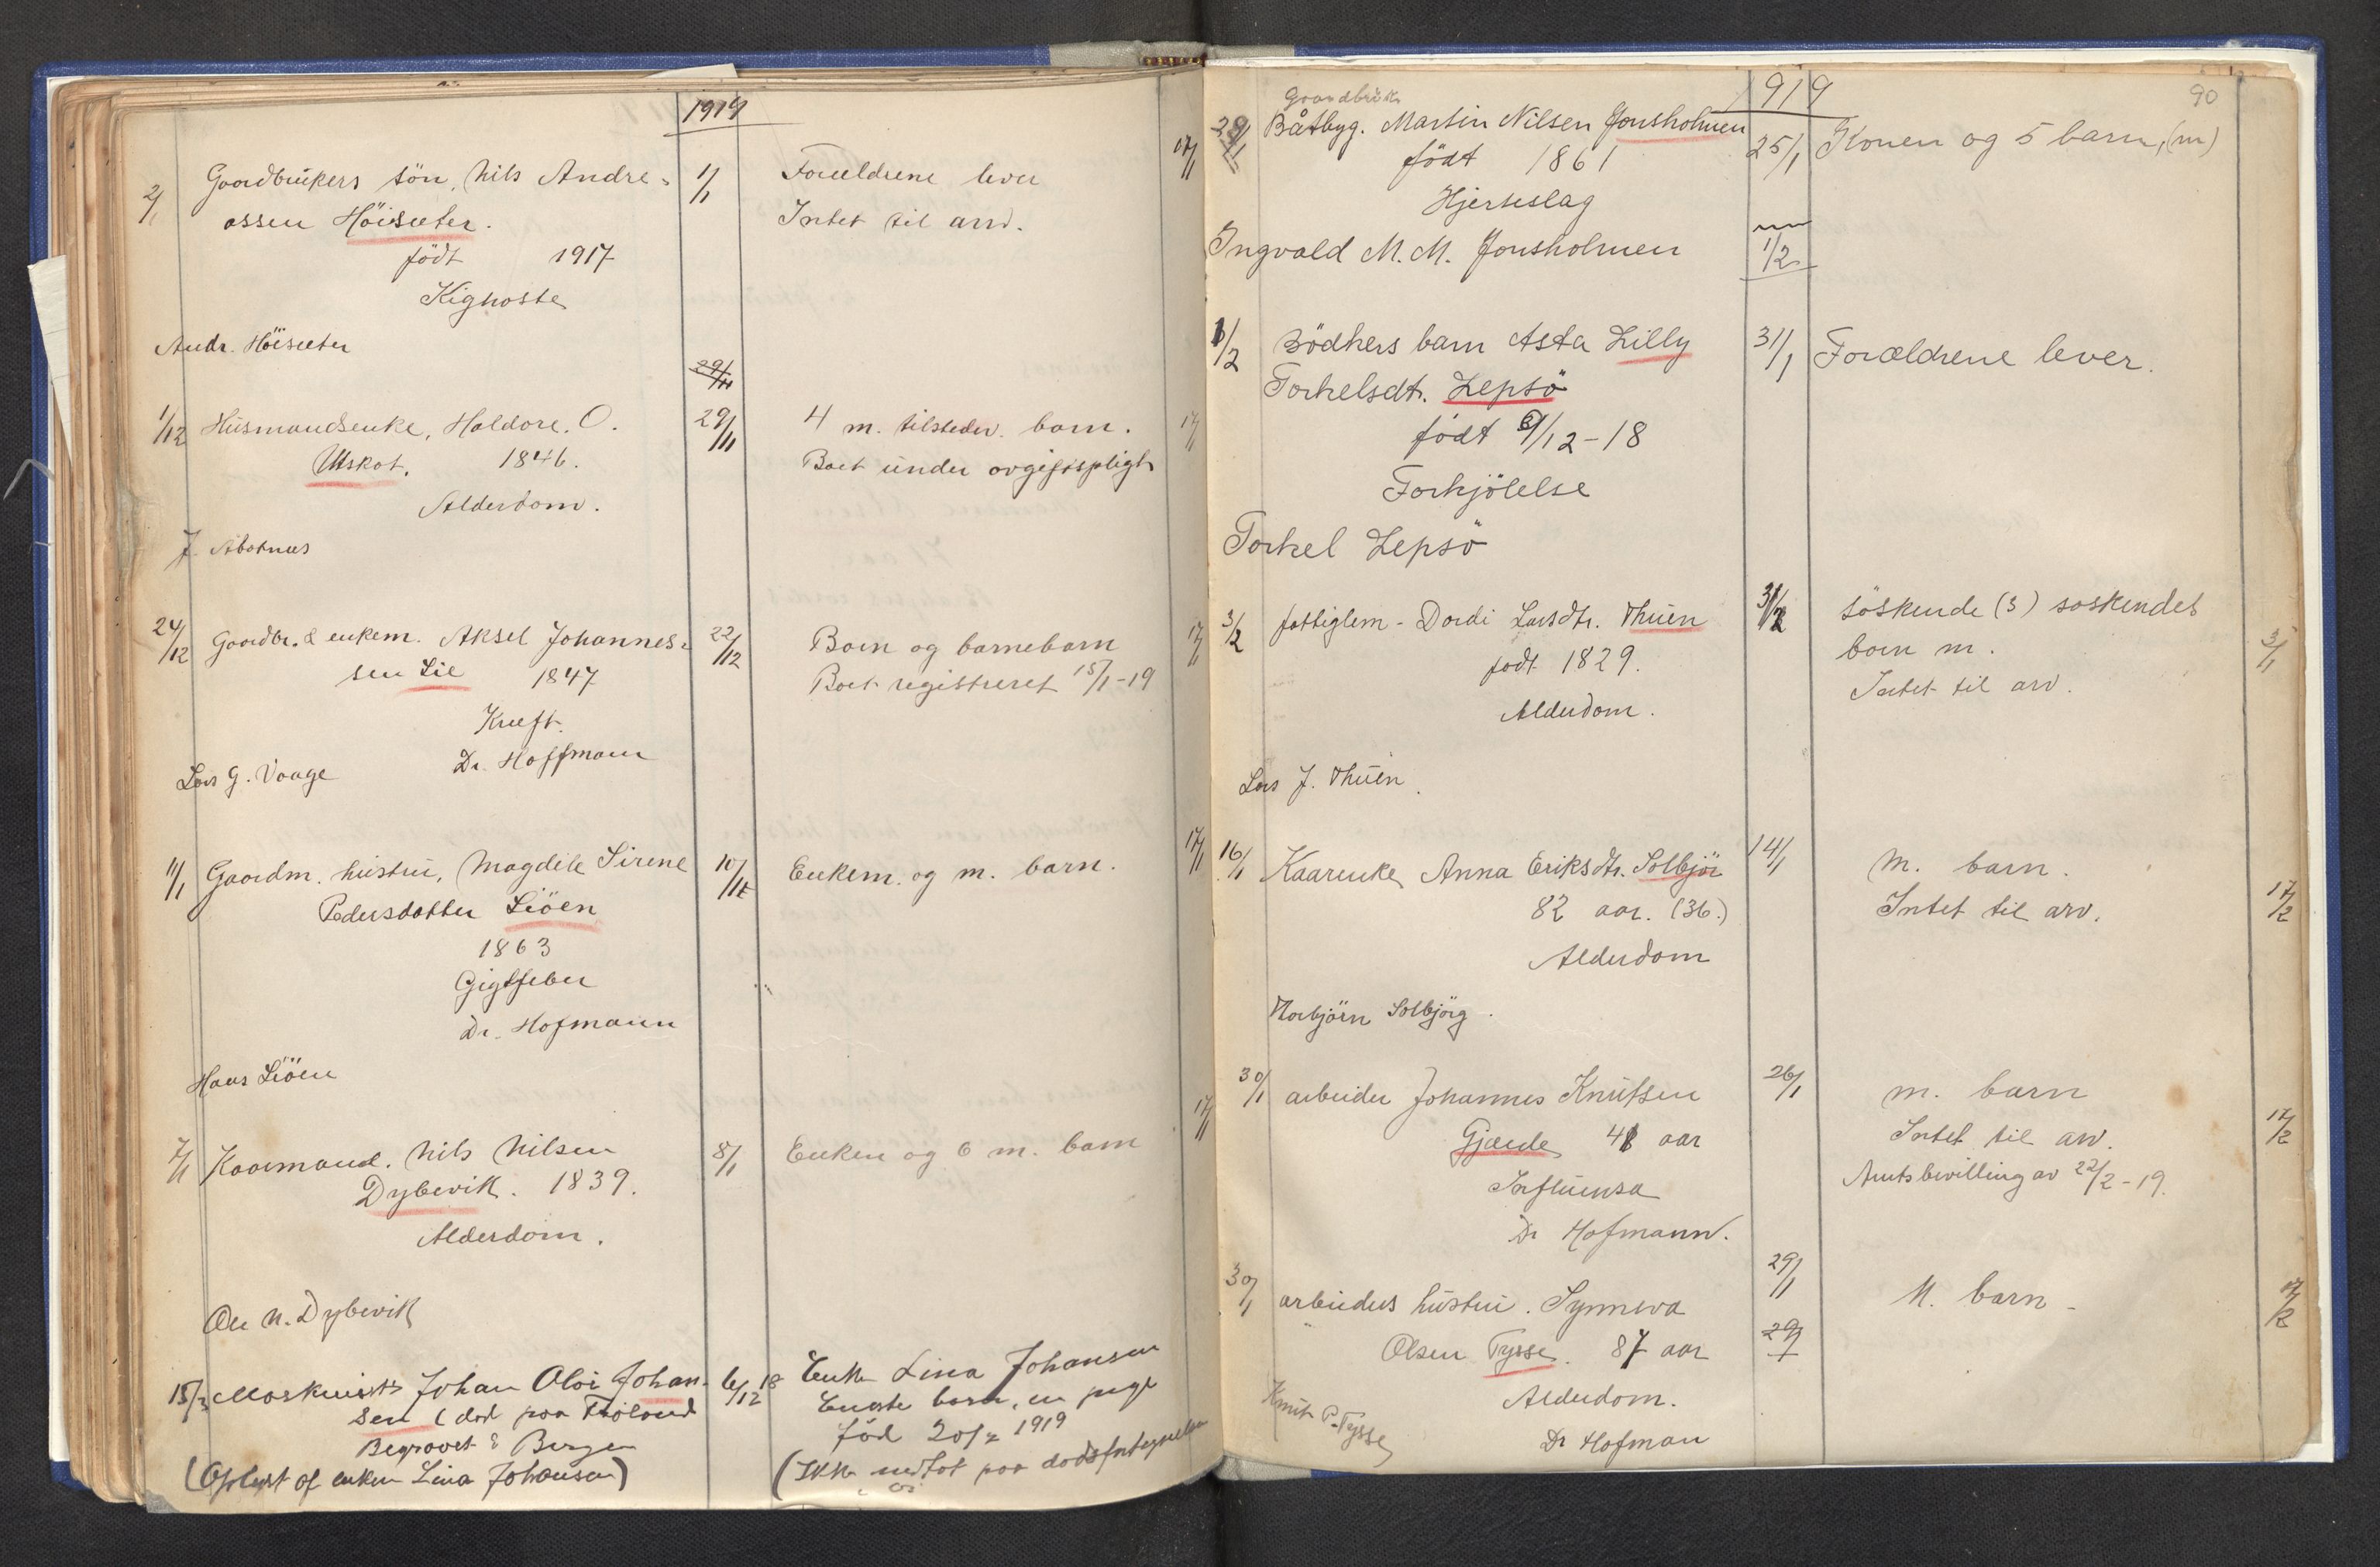 1919
2/1 Gaardbrukers sön, Nils Andre- 1/1 Forældrene lever 17/1
assen Höisæter. Intet til arv.
født 1917
Kighoste
Andr. Höisæter
29/11
1/12 Husmandsenke, Haldore. O. 29/11 4 m. tilstedev. barn. 17/1
Utskot. 1846. Boet under avgiftspligt
Alderdom.
J. Abotnæs
24/12 Gaardbr. & enkem. Aksel Johannes- 22/12 Barn og barnebarn 17/1
sen Lie 1847 Boet registreret 15/1-19
Kræft.
Dr. Hoffmann
Lars G. Vaage
11/1 Gaardm. hustru, Magdele Sirene 10/1 Enkem. og m. barn. 17/1
Pedersdatter Liöen
1863
Gigtfeber
Dr. Hofmann
Hans Liöen
7/1 Kaarmand. Nils Nilsen 8/1 Enken og 6 m. barn 17/1
Dybevik. 1839.
Alderdom.
Ole N. Dybevik
15/3 Maskinist Johan Olai Johan- 6/12 18 Enke Lina Johansen
sen (död paa Fröland Eneste barn, en pige
Begravet i Bergen född 20/2 1919
(Oplyst af enken Lina Johansen) (Ikke medtat paa dödsfortegnelsen
1919 90
Gaardbruk
29/1 Båtbyg. Martin Nilsen Jonsholmen 25/1 Konen og 5 barn, (m)
født 1861
Hjerteslag
Ingvald M. M. Jonsholmen 1/2
1/2 Bödkers barn Asta Lilly 31/1 Forældrene lever.
Torkelsdt. Lepsö
født 9/12-18
Forkjölelse
Torkel Lepsö
3/2 fattiglem - Dordi Larsdtr. Thuen 31/2 söskende (3) söskendes
født 1829. barn m. 3/1
Alderdom. Intet til arv.
Lars J. Thuen.
16/1 Kaarenke, Anna Eriksdtr. Solbjör 14/1 m. barn.
82 aar. (36.) Intet til arv. 17/2
Alderdom
Torbjörn Solbjörg.
30/1 arbeider Johannes Knutsen 26/1 m. barn
Gjærde 41 aar Intet til arv. 17/2
Influensa Amtsbevilling av 22/2-19.
Dr Hofmann.
30/1 arbeiders hustru. Synneva 29/1 M. barn - 17/2
Olsen Tysse. 87 aar 29/1
Alderdom.
Knut P. Tysse
Dr Hofman